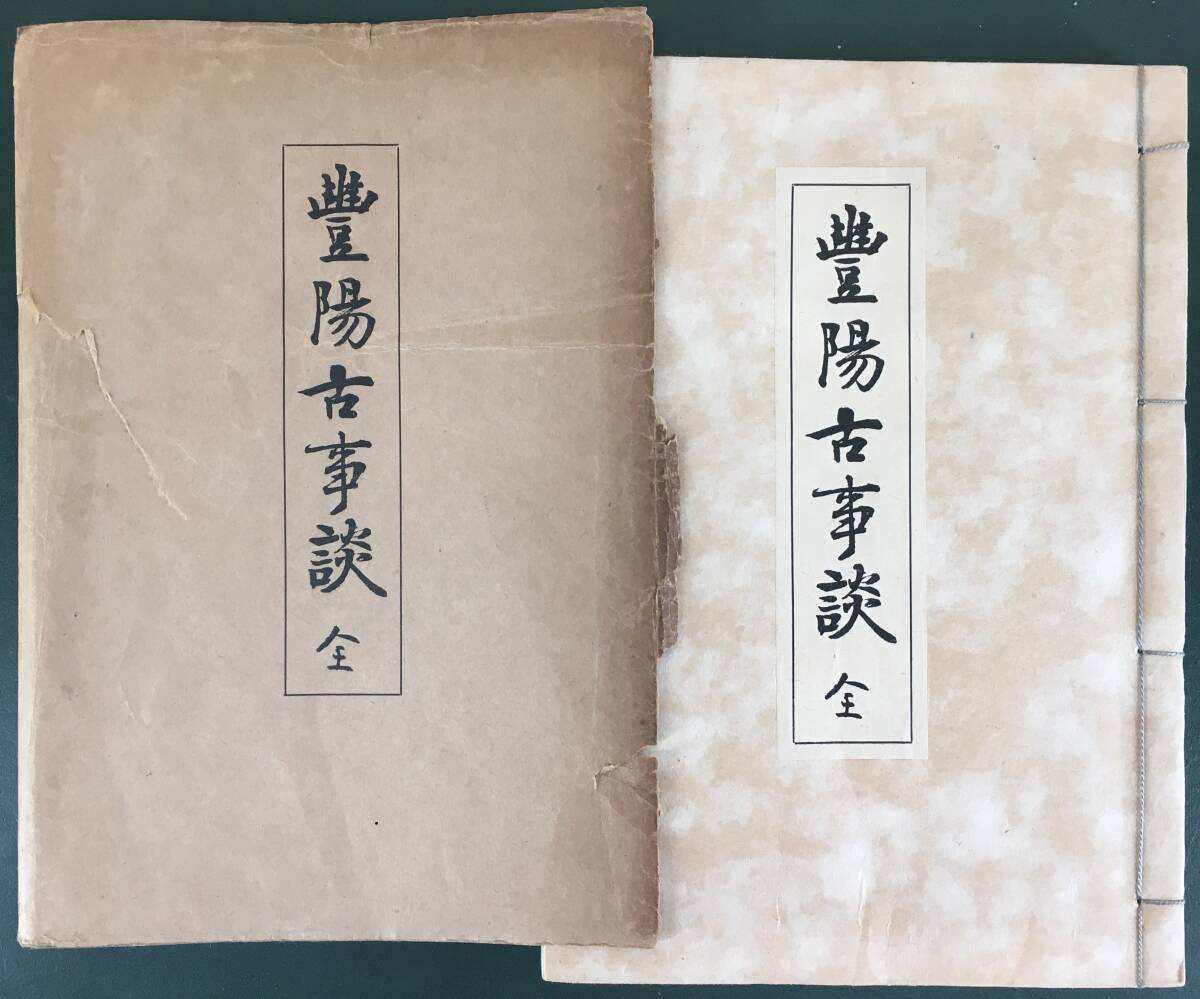 豐陽古事談 全
豐陽古事談 全